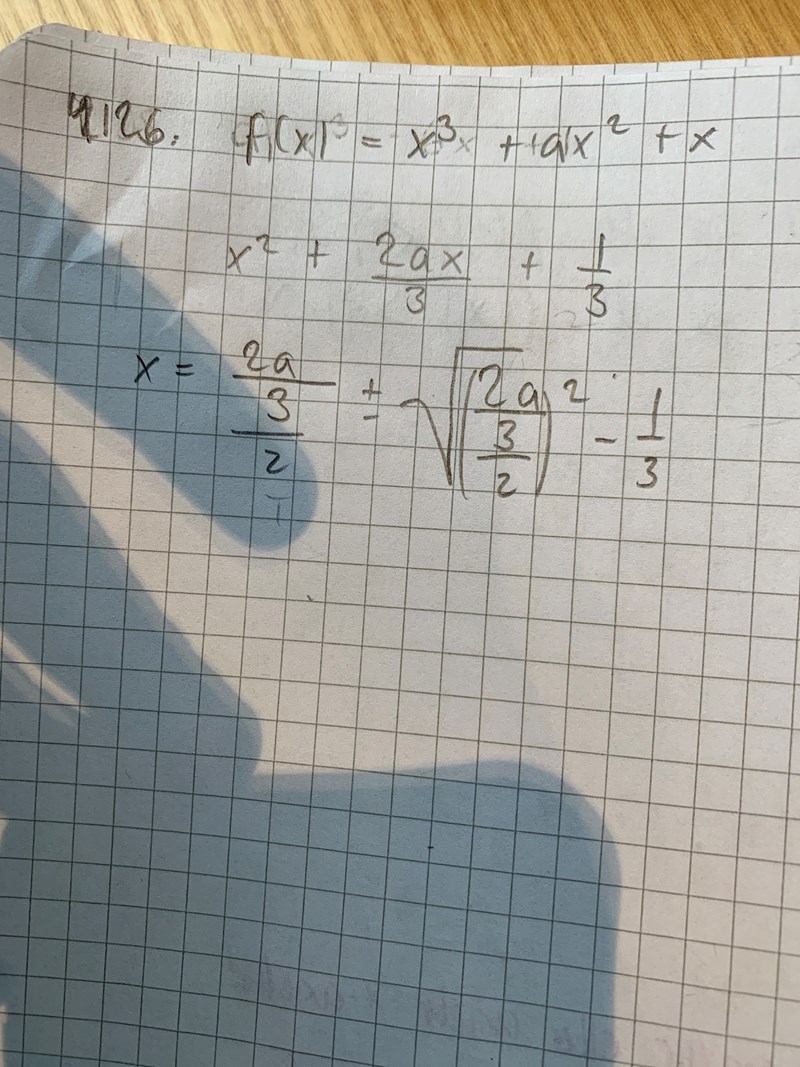 4126. f(x) = x³ + ax² + x
x² + 2ax/3 + 1/3
x = 2a/3/2 ± √(2a/3/2)² - 1/3